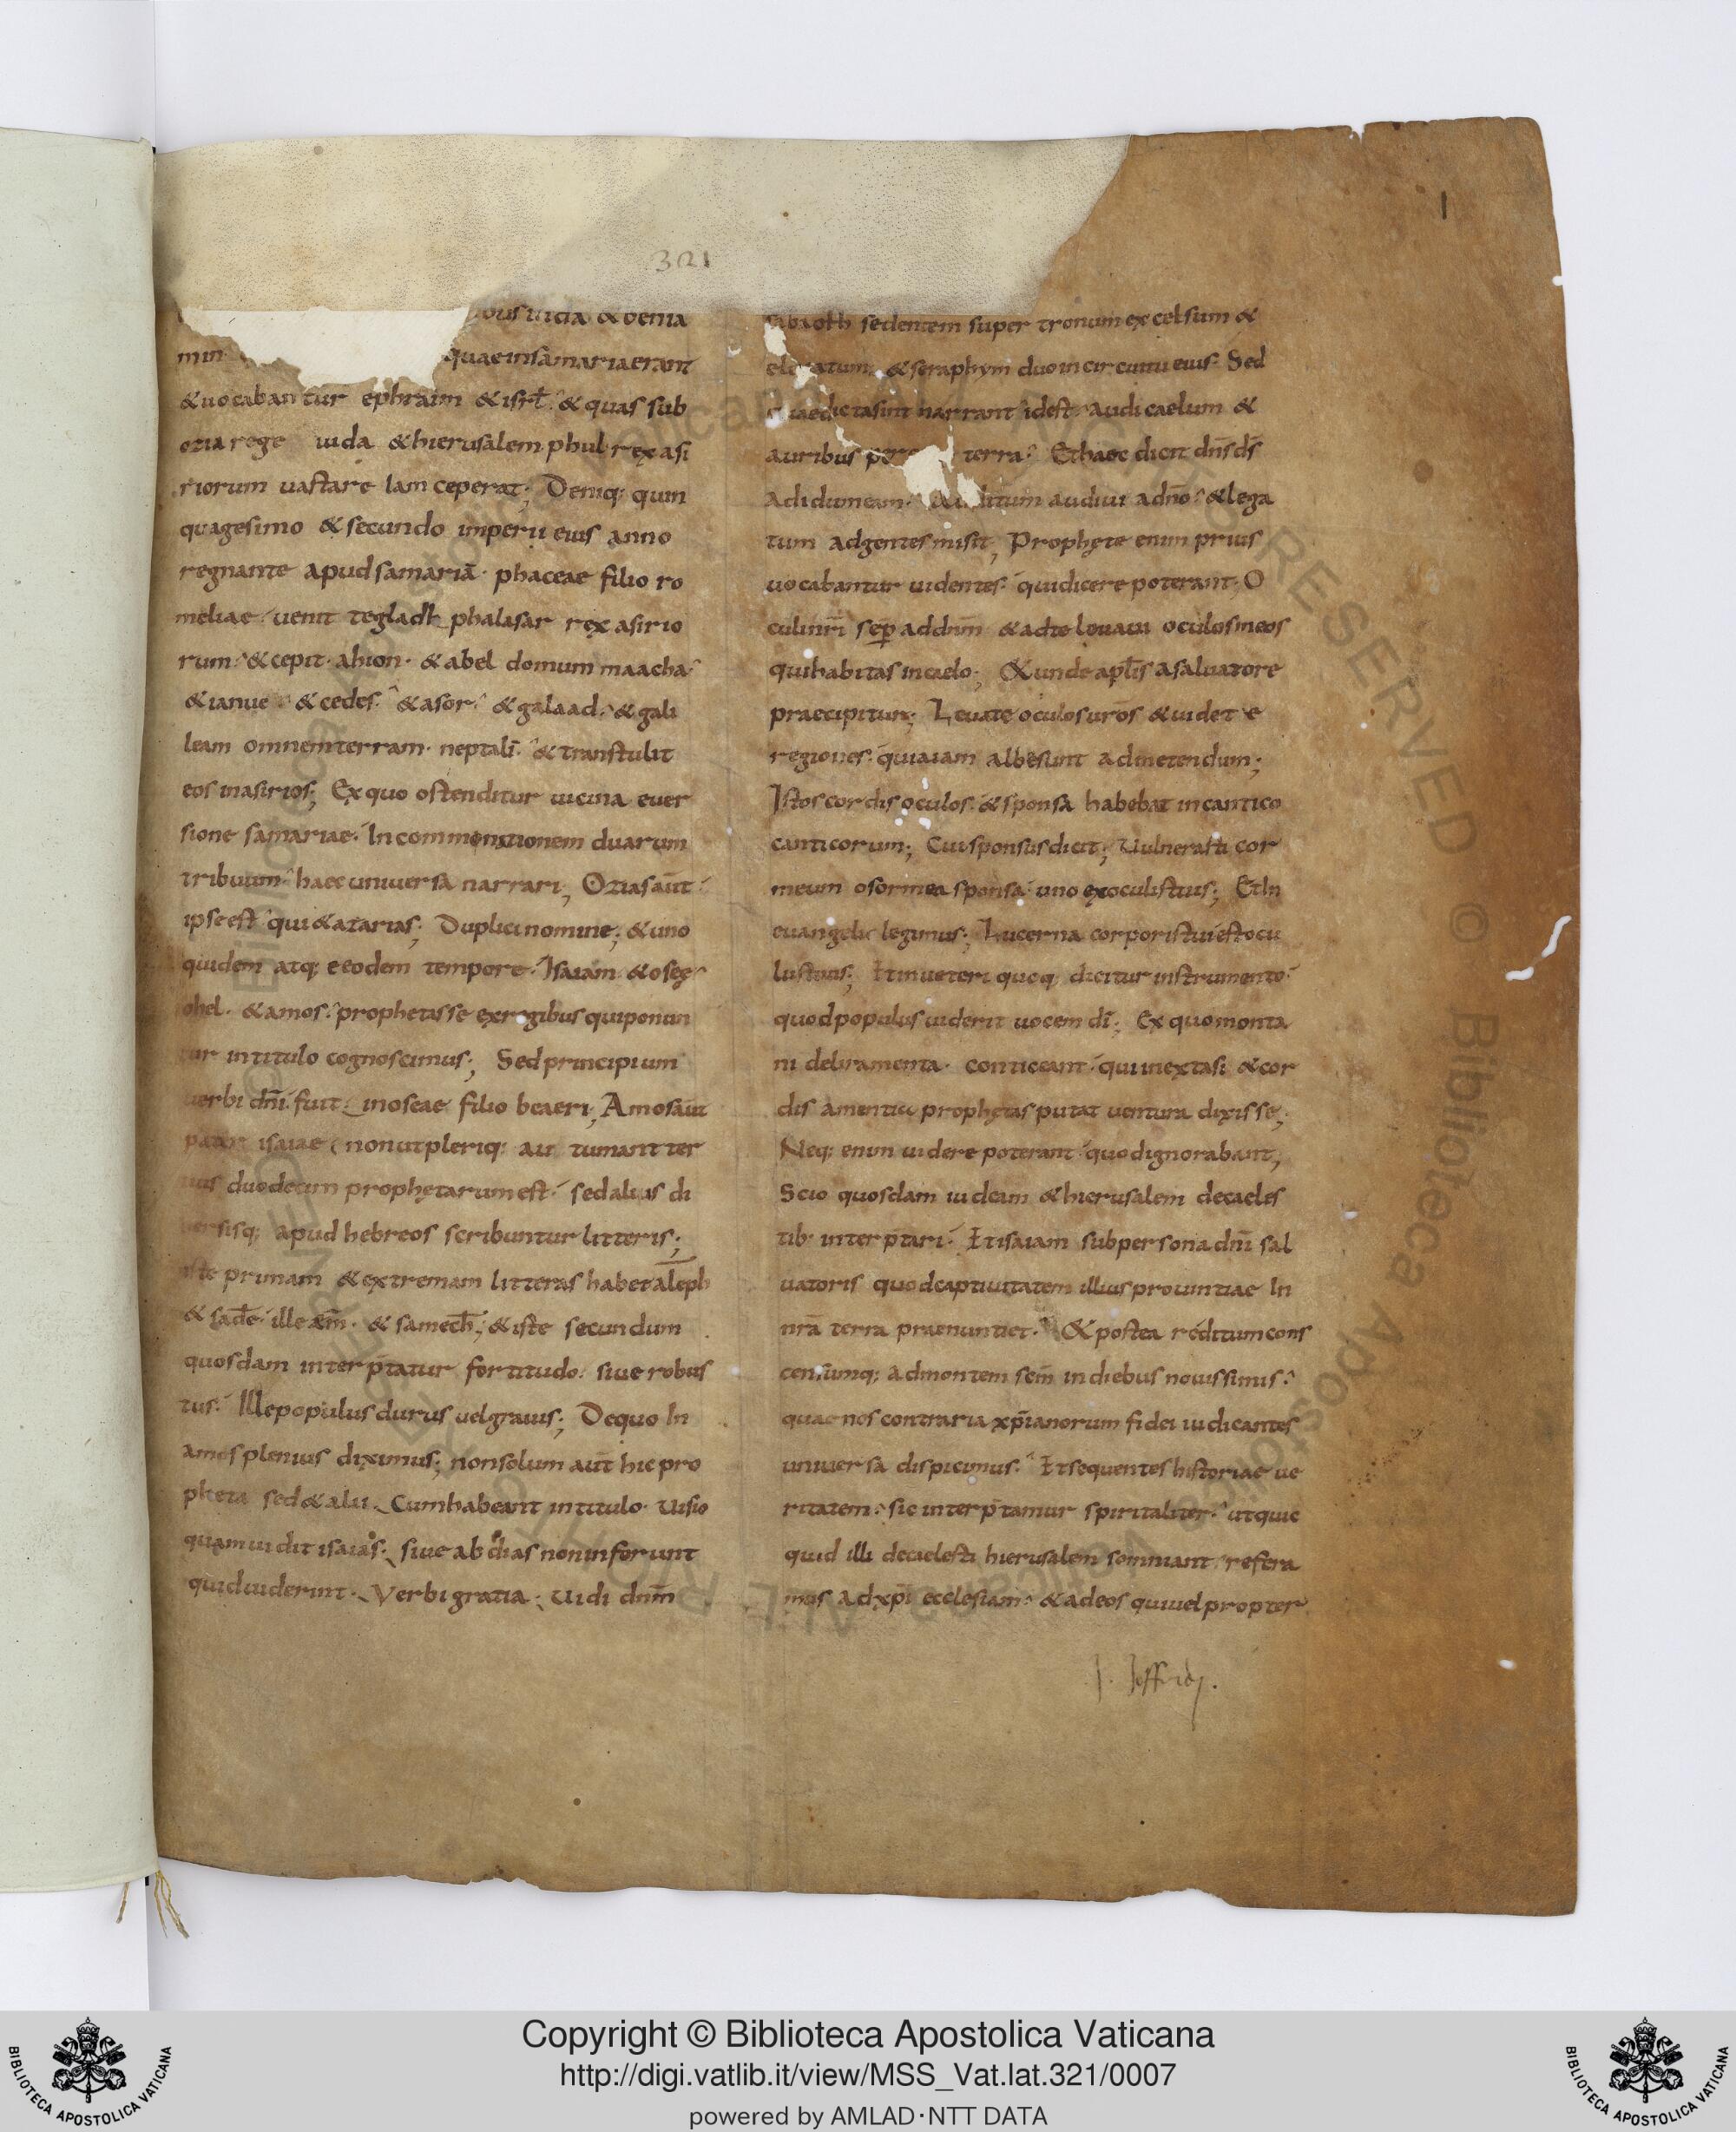 321
1
bus iuda & benia
min quae in samaria erant
& uocabantur ephraim & isrl̄ & quas sub
ozia rege iuda & hierusalem phul rex asi
riorum uastare iam ceperat; Deniq: quin
quagesimo & secundo imperii eius anno
regnante apud samariā· phaceae filio ro
meliae uenit tegladh phalasar rex asirio
rum & cepit· ahion· & abel domum maacha
& ianue & cedes & asor & galaad & gali
leam omnem terram· neptali & transtulit
eos in asirios; Ex quo ostenditur uicina euer
sione samariae· In duarum
tribuum haec uniuersa narrari; Ozias aut̄
ipse est qui & azarias; Duplici nomine; & uno
quidem atq: eodem tempore· Isaiam & osee
ohel· & amos prophetasse ex regibus qui ponun
tur in titulo cognoscimus; Sed principium
uerbi dn̄i fuit in oseae filio beaeri; Amos aut̄
pater isaiae non ut pleriq: au tumant ter
tius duodecim prophetarum est sed alius di
uersisq: apud hebreos scribuntur litteris;
iste primam & extremam litteras habet aleph
& sade ille & samech; & iste secundum
quosdam interp̄tatur fortitudo· siue robus
tus· Ille populus durus uel grauis; De quo In
amos plenius diximus; non solum aut̄ hic pro
pheta sed & alii Cum habeant in titulo· Uisio
quam uidit isaias· siue abdias non inferunt
quid uiderint· Verbi gratia; Uidi dn̄m
sabaoth sedentem super tronum excelsum &
eleuatum & seraphym duo in circuitu eius· Sed
quae dicta sint narrant idest· audi caelum &
auribus perc terra Et haec dicit dn̄s ds̄
ad idumeam· Auditum audiui a dn̄o & lega
tum ad gentes misit; Prophete enim prius
uocabantur uidentes· qui dicere poterant· O
culi nr̄i sep̄ ad dn̄m & ad te leuaui oculos meos
qui habitas in caelo; & unde apl̄is a saluatore
praecipitur; Leuate oculos uros & uidete
regiones· quia iam albe sunt ad metendum;
Istos cordis oculos· & sponsa habebat in cantico
canticorum; Cui sponsus dicit; Uulnerasti cor
meum osor mea sponsa· uno ex oculis tuis; Et In
euangelio legimus; Lucerna corporis tui est ocu
lus tuus; Et in ueteri quoq; dicitur instrumento·
quod populus uiderit uocem di; Ex quo monta
ni deliramenta· conticeant· qui in extasi & cor
dis amentia prophetas putat uentura dixisse;
Neq: enim uidere poterant quod ignorabant;
Scio quosdam iudeam & hierusalem decaeles
tib· interp̄tari· Et isaiam sub persona dn̄i sal
uatoris quod captiuitatem illius prouintiae In
nr̄a terra praenuntiet· & postea reditum cons
censumq; ad montem in diebus nouissimis·
quae nos contraria xp̄ianorum fidei iudicantes
uniuersa dispicimus· Et sequentes historiae ue
ritatem· sic interp̄tamur spiritaliter· ut quic
quid illi decaelesti hierusalem somniant· refera
mus ad xp̄i ecclesiam· & ad eos qui uel propter
Copyright © Biblioteca Apostolica Vaticana
http://digi.vatlib.it/view/MSS_Vat.lat.321/0007
powered by AMLAD·NTT DATA
BIBLIOTECA APOSTOLICA VATICANA
BIBLIOTECA APOSTOLICA VATICANA